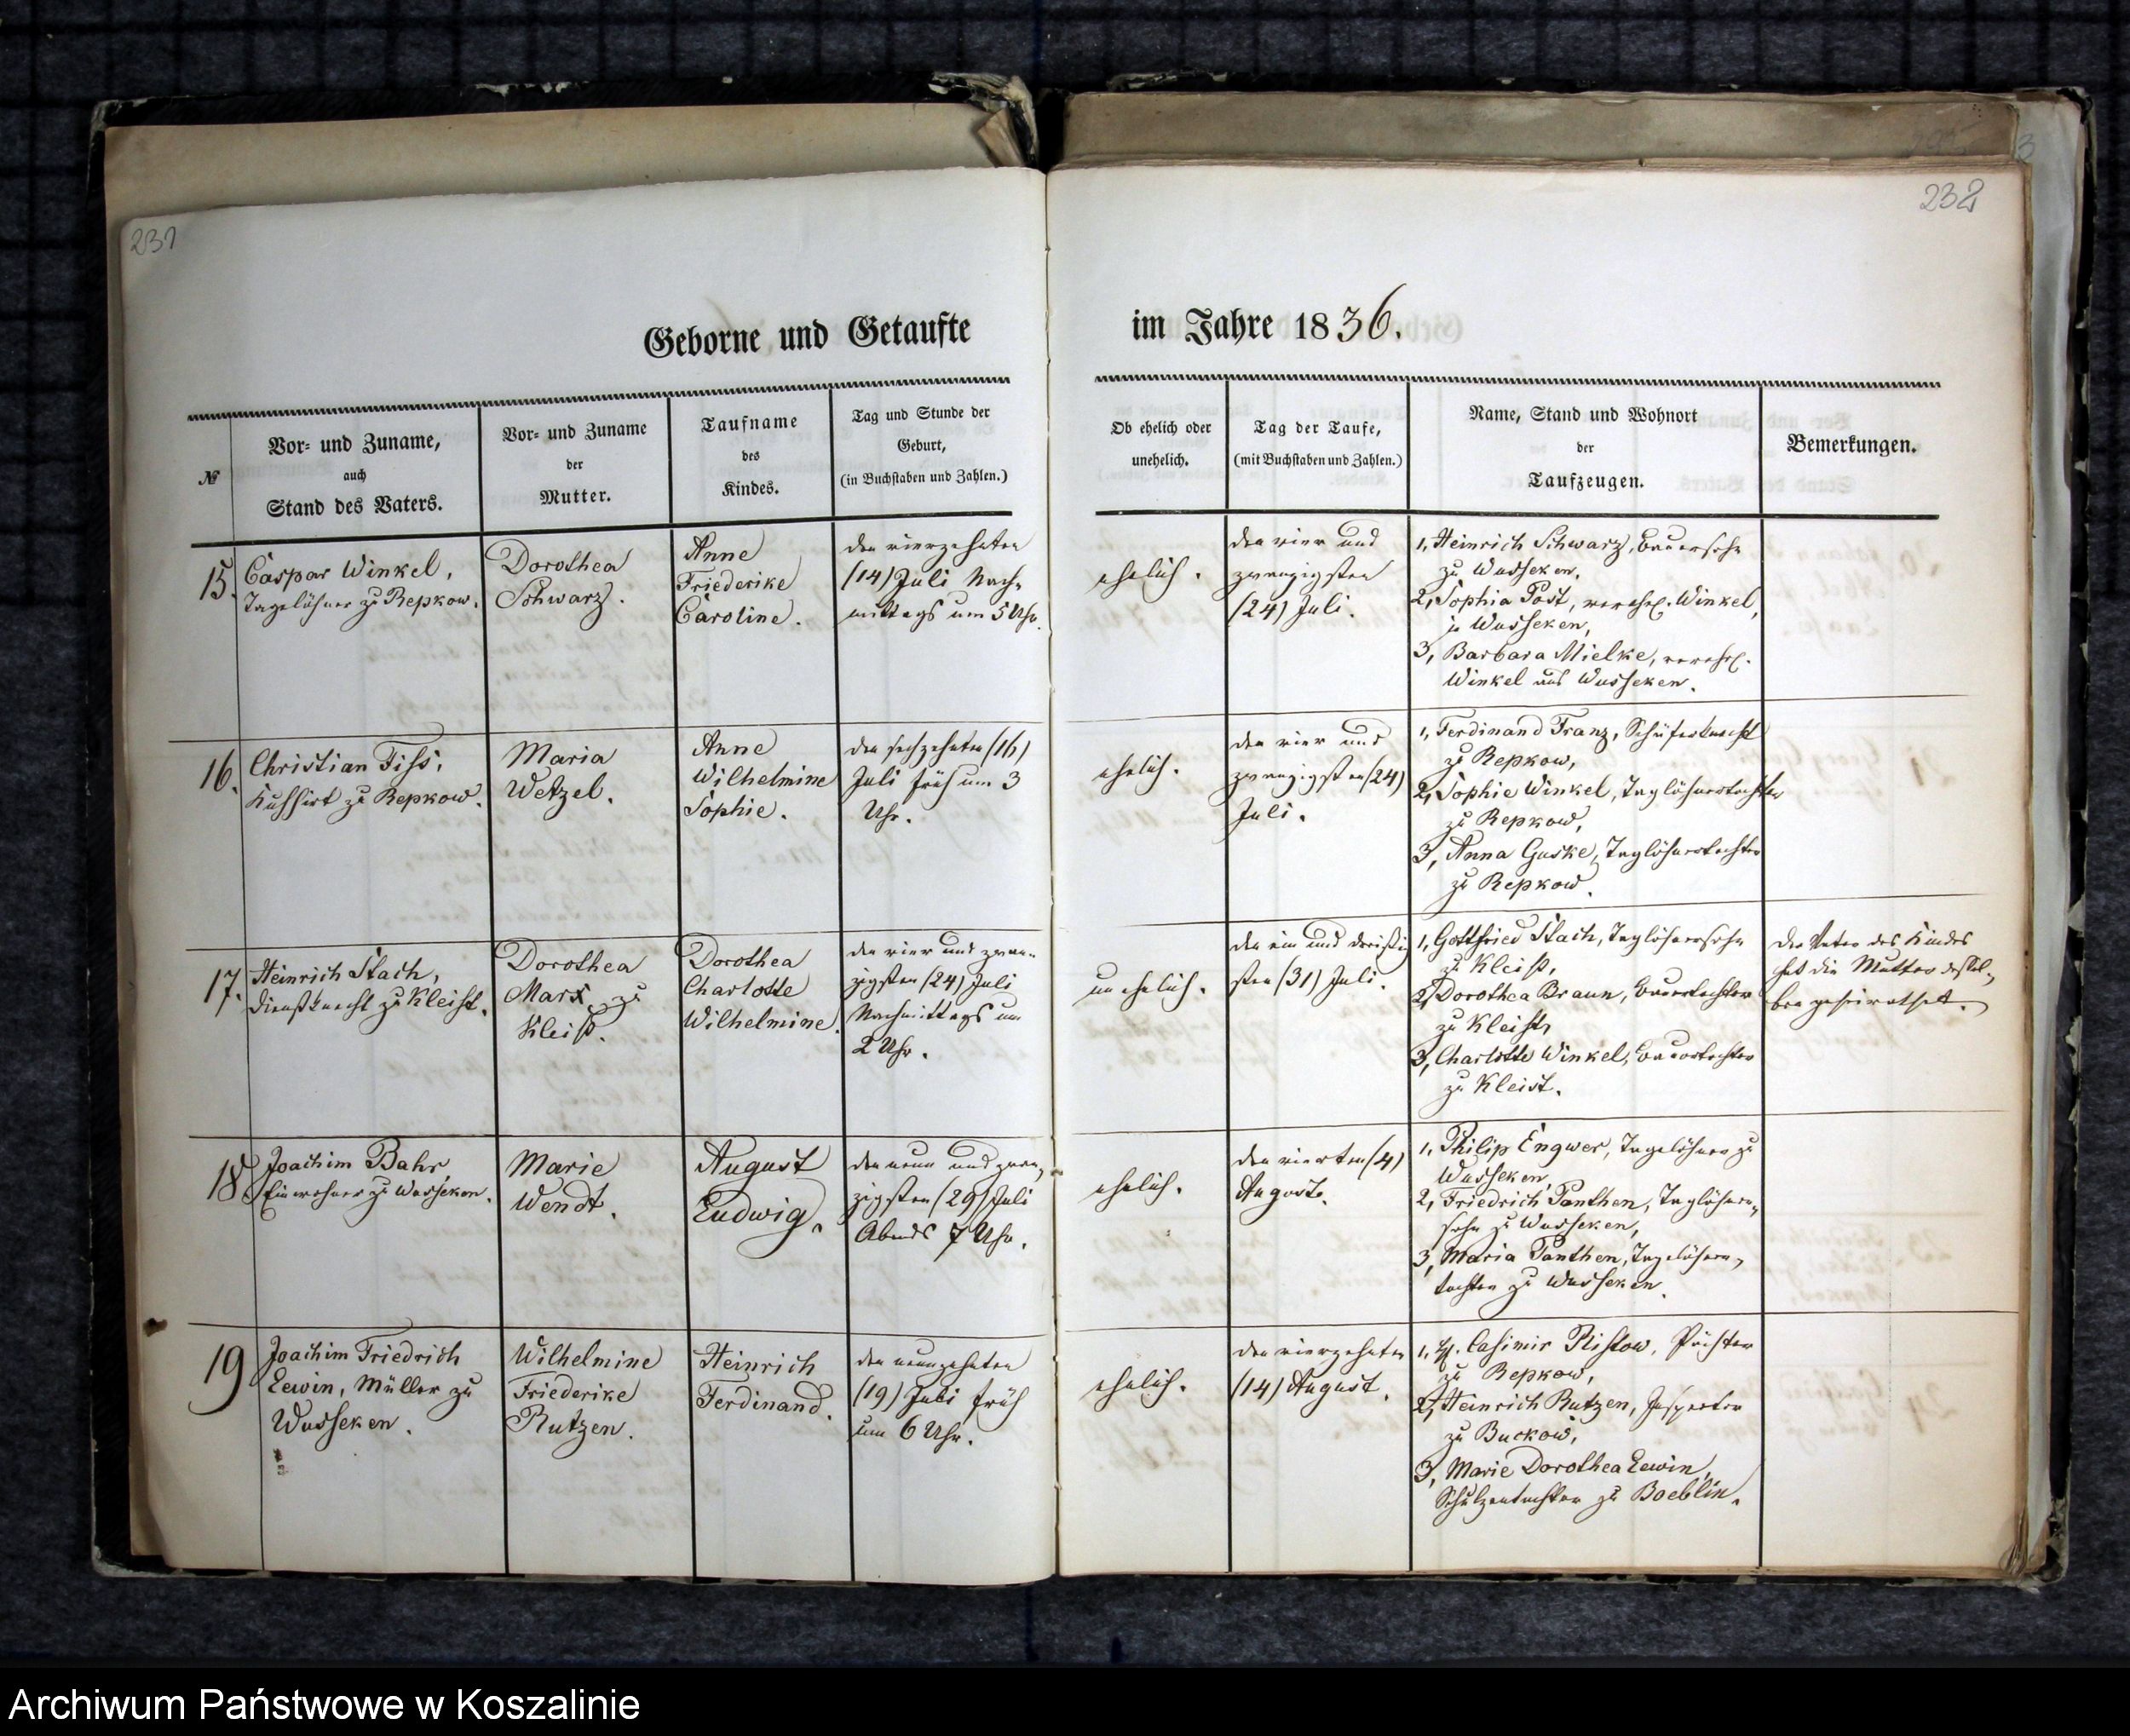 231
232
Geborne und Getaufte
im Jahre 1836.
№
Vor- und Zuname,
auch
Stand des Vaters.
Vor- und Zuname
der
Mutter.
Taufname
des
Kindes.
Tag und Stunde der
Geburt,
(in Buchstaben und Zahlen.)
Ob ehelich oder
unehelich.
Tag der Taufe,
(mit Buchstaben und Zahlen.)
Name, Stand und Wohnort
der
Taufzeugen.
Bemerkungen.
15.
Caspar Winkel,
Tagelöhner zu Repkow.
Dorothea
Schwarz.
Anne
Friederike
Caroline.
den vierzehnten
(14) Juli Nach-
mittags um 5 Uhr.
ehelich.
den vier und
zwanzigsten
(24) Juli.
1, Heinrich Schwarz, Bauersohn
zu Wusseken,
2, Sophia Post, verehel. Winkel,
zu Wusseken,
3, Barbara Mielke, verehel.
Winkel aus Wusseken.
16.
Christian Tiss,
Kuhhirt zu Repkow.
Maria
Wetzel.
Anne
Wilhelmine
Sophie.
den sechzehnten (16)
Juli früh um 3
Uhr.
ehelich.
den vier und
zwanzigsten (24)
Juli.
1, Ferdinand Franz, Schäferknecht
zu Repkow,
2, Sophie Winkel, Taglöhnertochter
zu Repkow,
3, Anna Guske, Taglöhnertochter
zu Repkow.
17.
Heinrich Stach,
Dienstknecht zu Kleist.
Dorothea
Marx zu
Kleist.
Dorothea
Charlotte
Wilhelmine.
den vier und zwan-
zigsten (24) Juli
Nachmittags um
2 Uhr.
unehelich.
den ein und dreißig
sten (31) Juli.
1, Gottfried Stach, Taglöhnersohn
zu Kleist,
2, Dorothea Braun, Bauertochter
zu Kleist,
3, Charlotte Winkel, Bauertochter
zu Kleist.
Der Vater des Kindes
hat die Mutter dessel-
ben geheirathet.
18
Joachim Bahr
Einwohner zu Wusseken.
Marie
Wendt.
August
Ludwig.
den neun und zwan-
zigsten (29) Juli
Abends 7 Uhr.
ehelich.
den vierten (4)
August.
1, Philip Engwer, Tagelöhner zu
Wusseken,
2, Friedrich Panthen, Taglöhner-
sohn zu Wusseken,
3, Maria Panthen, Tagelöhner-
tochter zu Wusseken.
19
Joachim Friedrich
Lewin, Müller zu
Wusseken.
Wilhelmine
Friederike
Rutzen.
Heinrich
Ferdinand.
den neunzehnten
(19) Juli früh
um 6 Uhr.
ehelich.
den vierzehnten
(14) August.
1, Casimir Ristow, Pächter
zu Repkow,
2, Heinrich Rutzen, Inspector
zu Buckow,
3, Marie Dorothea Lewin,
Schulzentochter zu Boeblin.
Archiwum Państwowe w Koszalinie